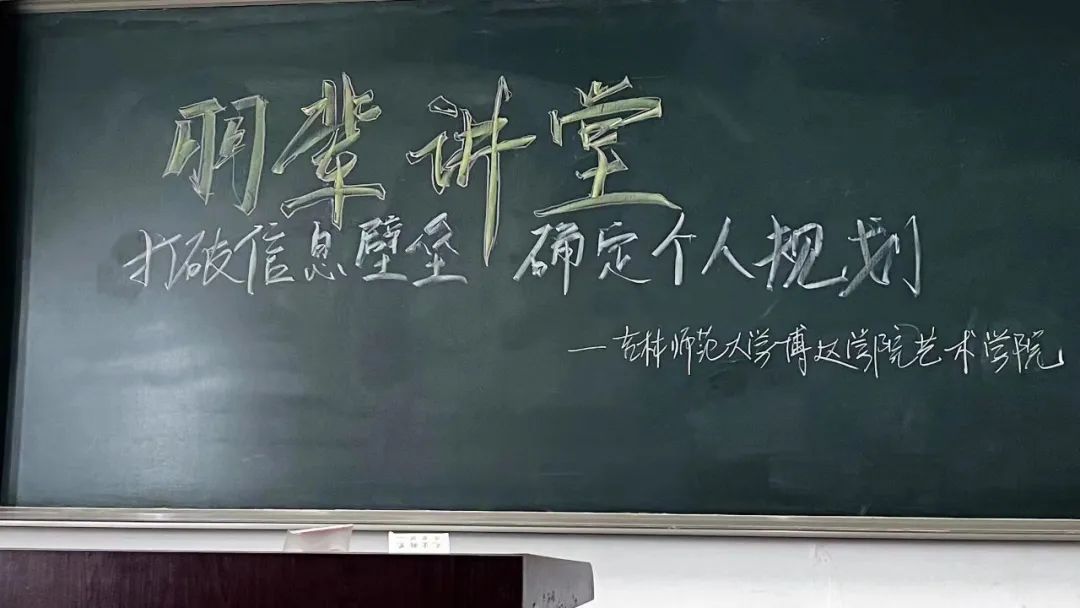 朋辈讲堂
打破信息壁垒 确定个人规划
—吉林师范大学博达学院艺术学院